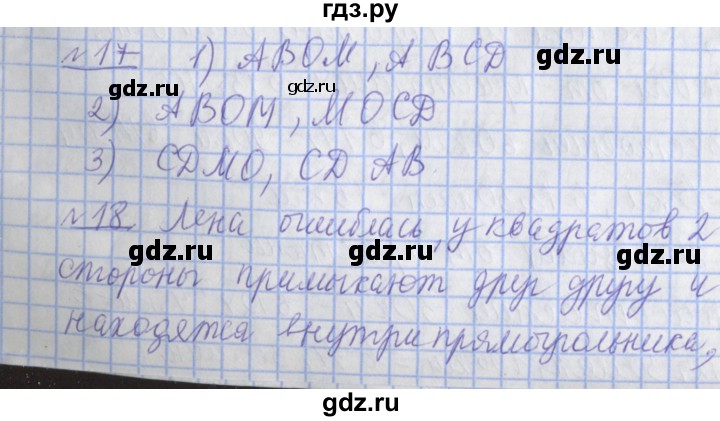 гдз.ру
№17 1) АВОМ, АВСD
gdz.ru gdz.ru gdz.ru
2) АВОМ, МОСD
3) СDМО, СDАВ.
№18. Лена ошиблась, у квадратов 2
gdz.ru gdz.ru
стороны примыкают друг другу и
находятся внутри прямоугольника,
gdz.ru gdz.ru
gdz.ru